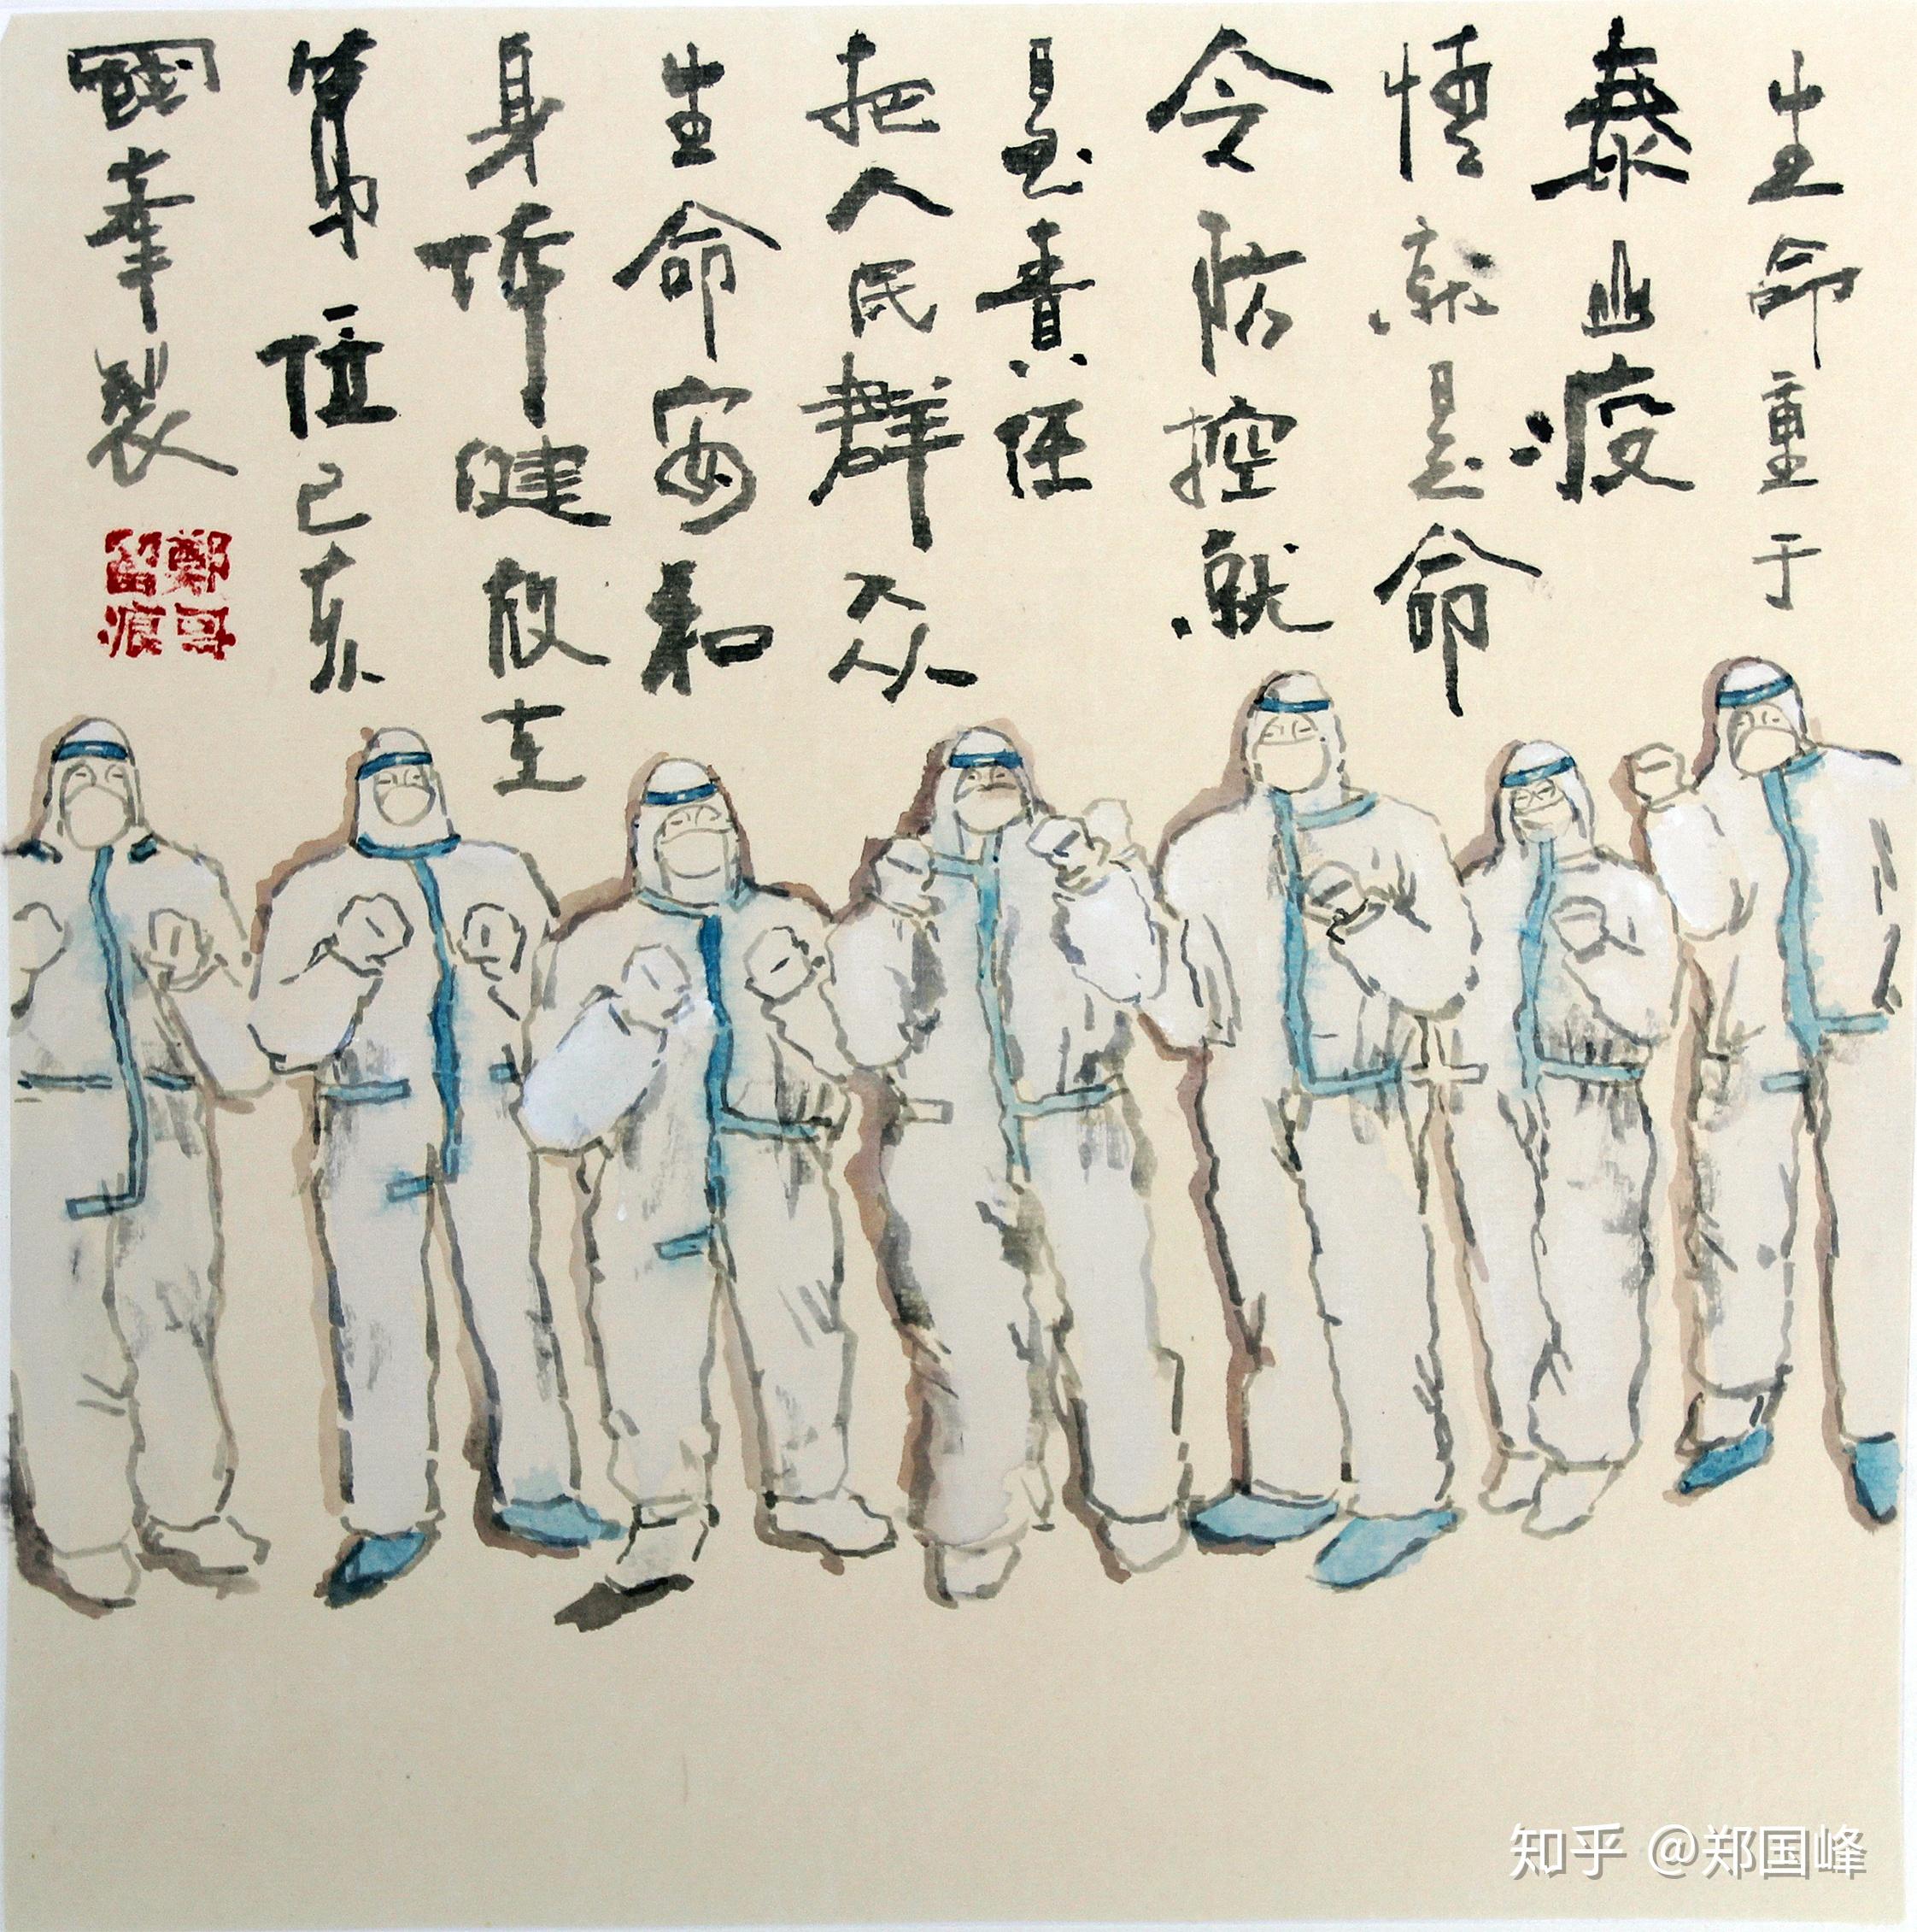 生命重于
泰山疫
情就是命
令防控就
是責任
把人民群众
生命安和
身体健放在
第一位己亥
國峯製
鄭哥
留痕
知乎 @郑国峰